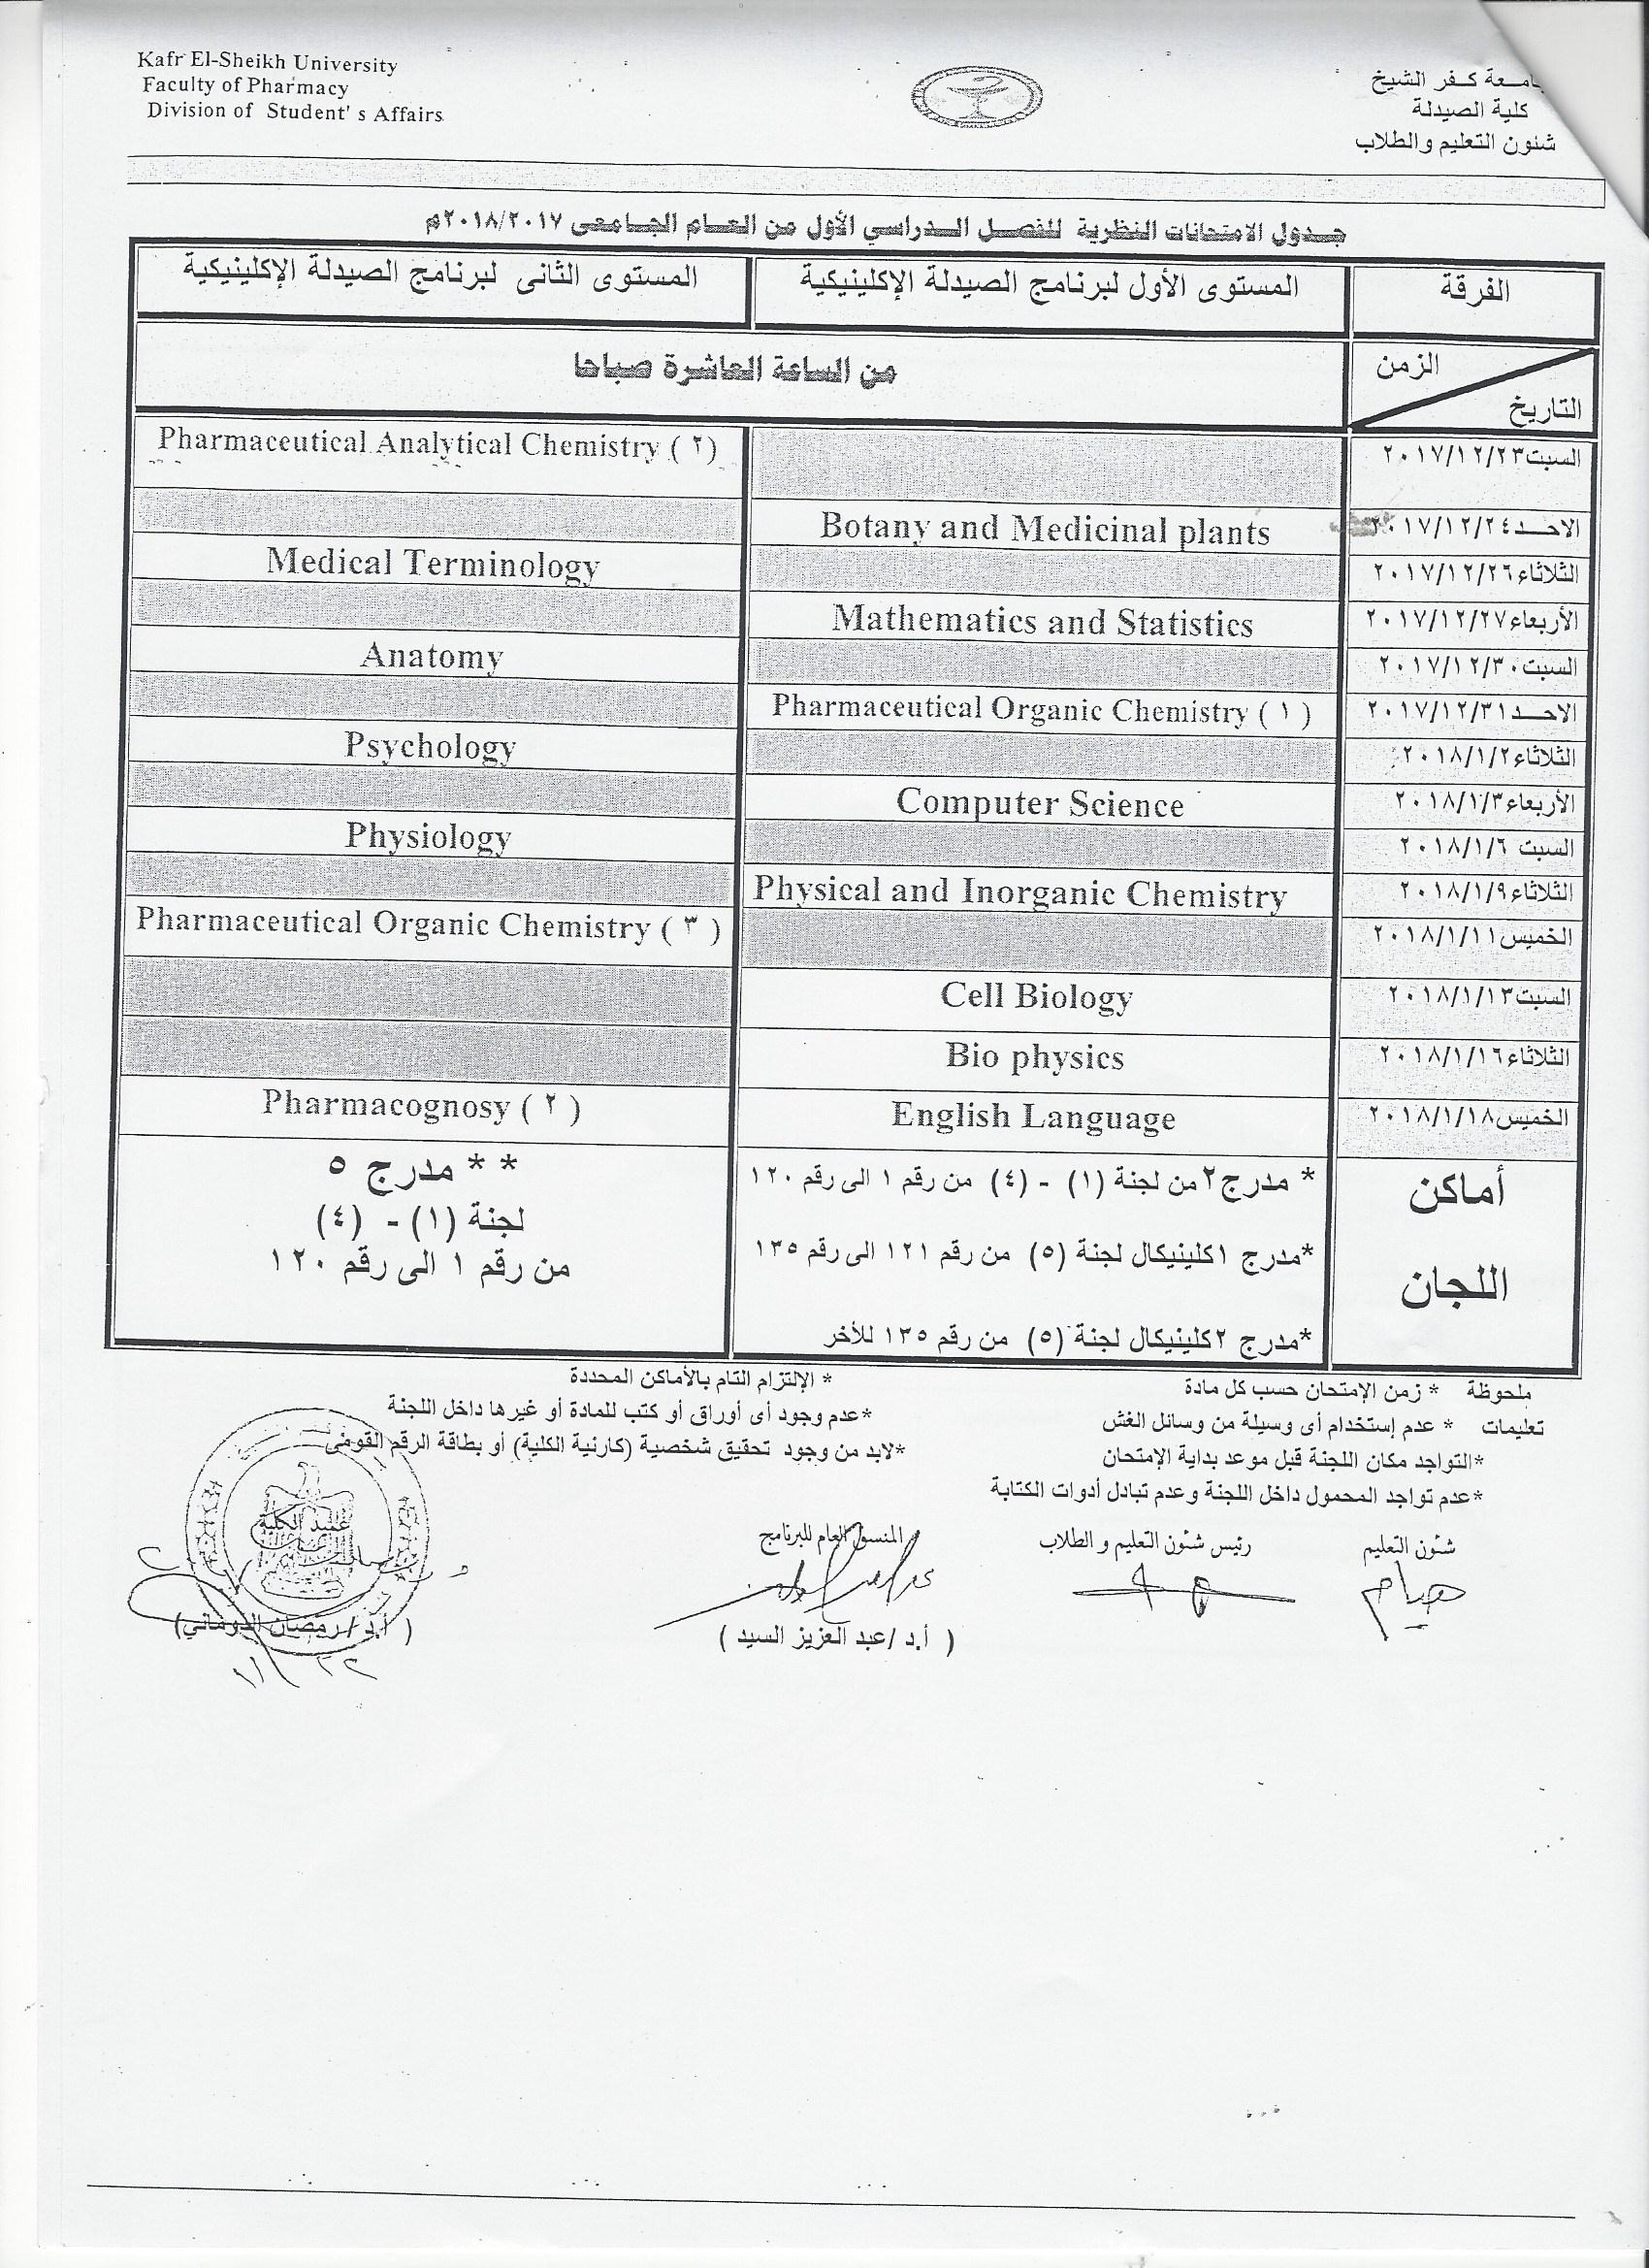 Kafr El-Sheikh University
Faculty of Pharmacy
Division of Student' s Affairs
جامعة كفر الشيخ
كلية الصيدلة
شئون التعليم والطلاب
جدول الامتحانات النظرية للفصل الدراسي الأول من العام الجامعى ٢٠١٨/٢٠١٧م
الفرقة المستوى الأول لبرنامج الصيدلة الإكلينيكية المستوى الثانى لبرنامج الصيدلة الإكلينيكية
الزمن
التاريخ
من الساعة العاشرة صباحا
السبت٢٠١٧/١٢/٢٣ Pharmaceutical Analytical Chemistry ( ٢ )
الاحد٢٠١٧/١٢/٢٤ Botany and Medicinal plants
الثلاثاء٢٠١٧/١٢/٢٦ Medical Terminology
الأربعاء٢٠١٧/١٢/٢٧ Mathematics and Statistics
السبت٢٠١٧/١٢/٣٠ Anatomy
الاحد٢٠١٧/١٢/٣١ Pharmaceutical Organic Chemistry ( ١ )
الثلاثاء٢٠١٨/١/٢ Psychology
الأربعاء٢٠١٨/١/٣ Computer Science
السبت ٢٠١٨/١/٦ Physiology
الثلاثاء٢٠١٨/١/٩ Physical and Inorganic Chemistry
الخميس٢٠١٨/١/١١ Pharmaceutical Organic Chemistry ( ٣ )
السبت٢٠١٨/١/١٣ Cell Biology
الثلاثاء٢٠١٨/١/١٦ Bio physics
الخميس٢٠١٨/١/١٨ English Language Pharmacognosy ( ٢ )
أماكن
اللجان
* مدرج ٢ من لجنة (١) - (٤) من رقم ١ الى رقم ١٢٠
*مدرج ١كلينيكال لجنة (٥) من رقم ١٢١ الى رقم ١٣٥
*مدرج ٢كلينيكال لجنة (٥) من رقم ١٣٥ للأخر
* * مدرج ٥
لجنة (١) - (٤)
من رقم ١ الى رقم ١٢٠
ملحوظة * زمن الإمتحان حسب كل مادة * الإلتزام التام بالأماكن المحددة
تعليمات * عدم إستخدام أى وسيلة من وسائل الغش *عدم وجود أى أوراق أو كتب للمادة أو غيرها داخل اللجنة
*التواجد مكان اللجنة قبل موعد بداية الإمتحان *لابد من وجود تحقيق شخصية (كارنية الكلية) أو بطاقة الرقم القومى
*عدم تواجد المحمول داخل اللجنة وعدم تبادل أدوات الكتابة
شئون التعليم رئيس شئون التعليم و الطلاب المنسق العام للبرنامج عميد الكلية
هيام
( أ.د /عبد العزيز السيد ) ( أ.د / رمضان الدوماني)